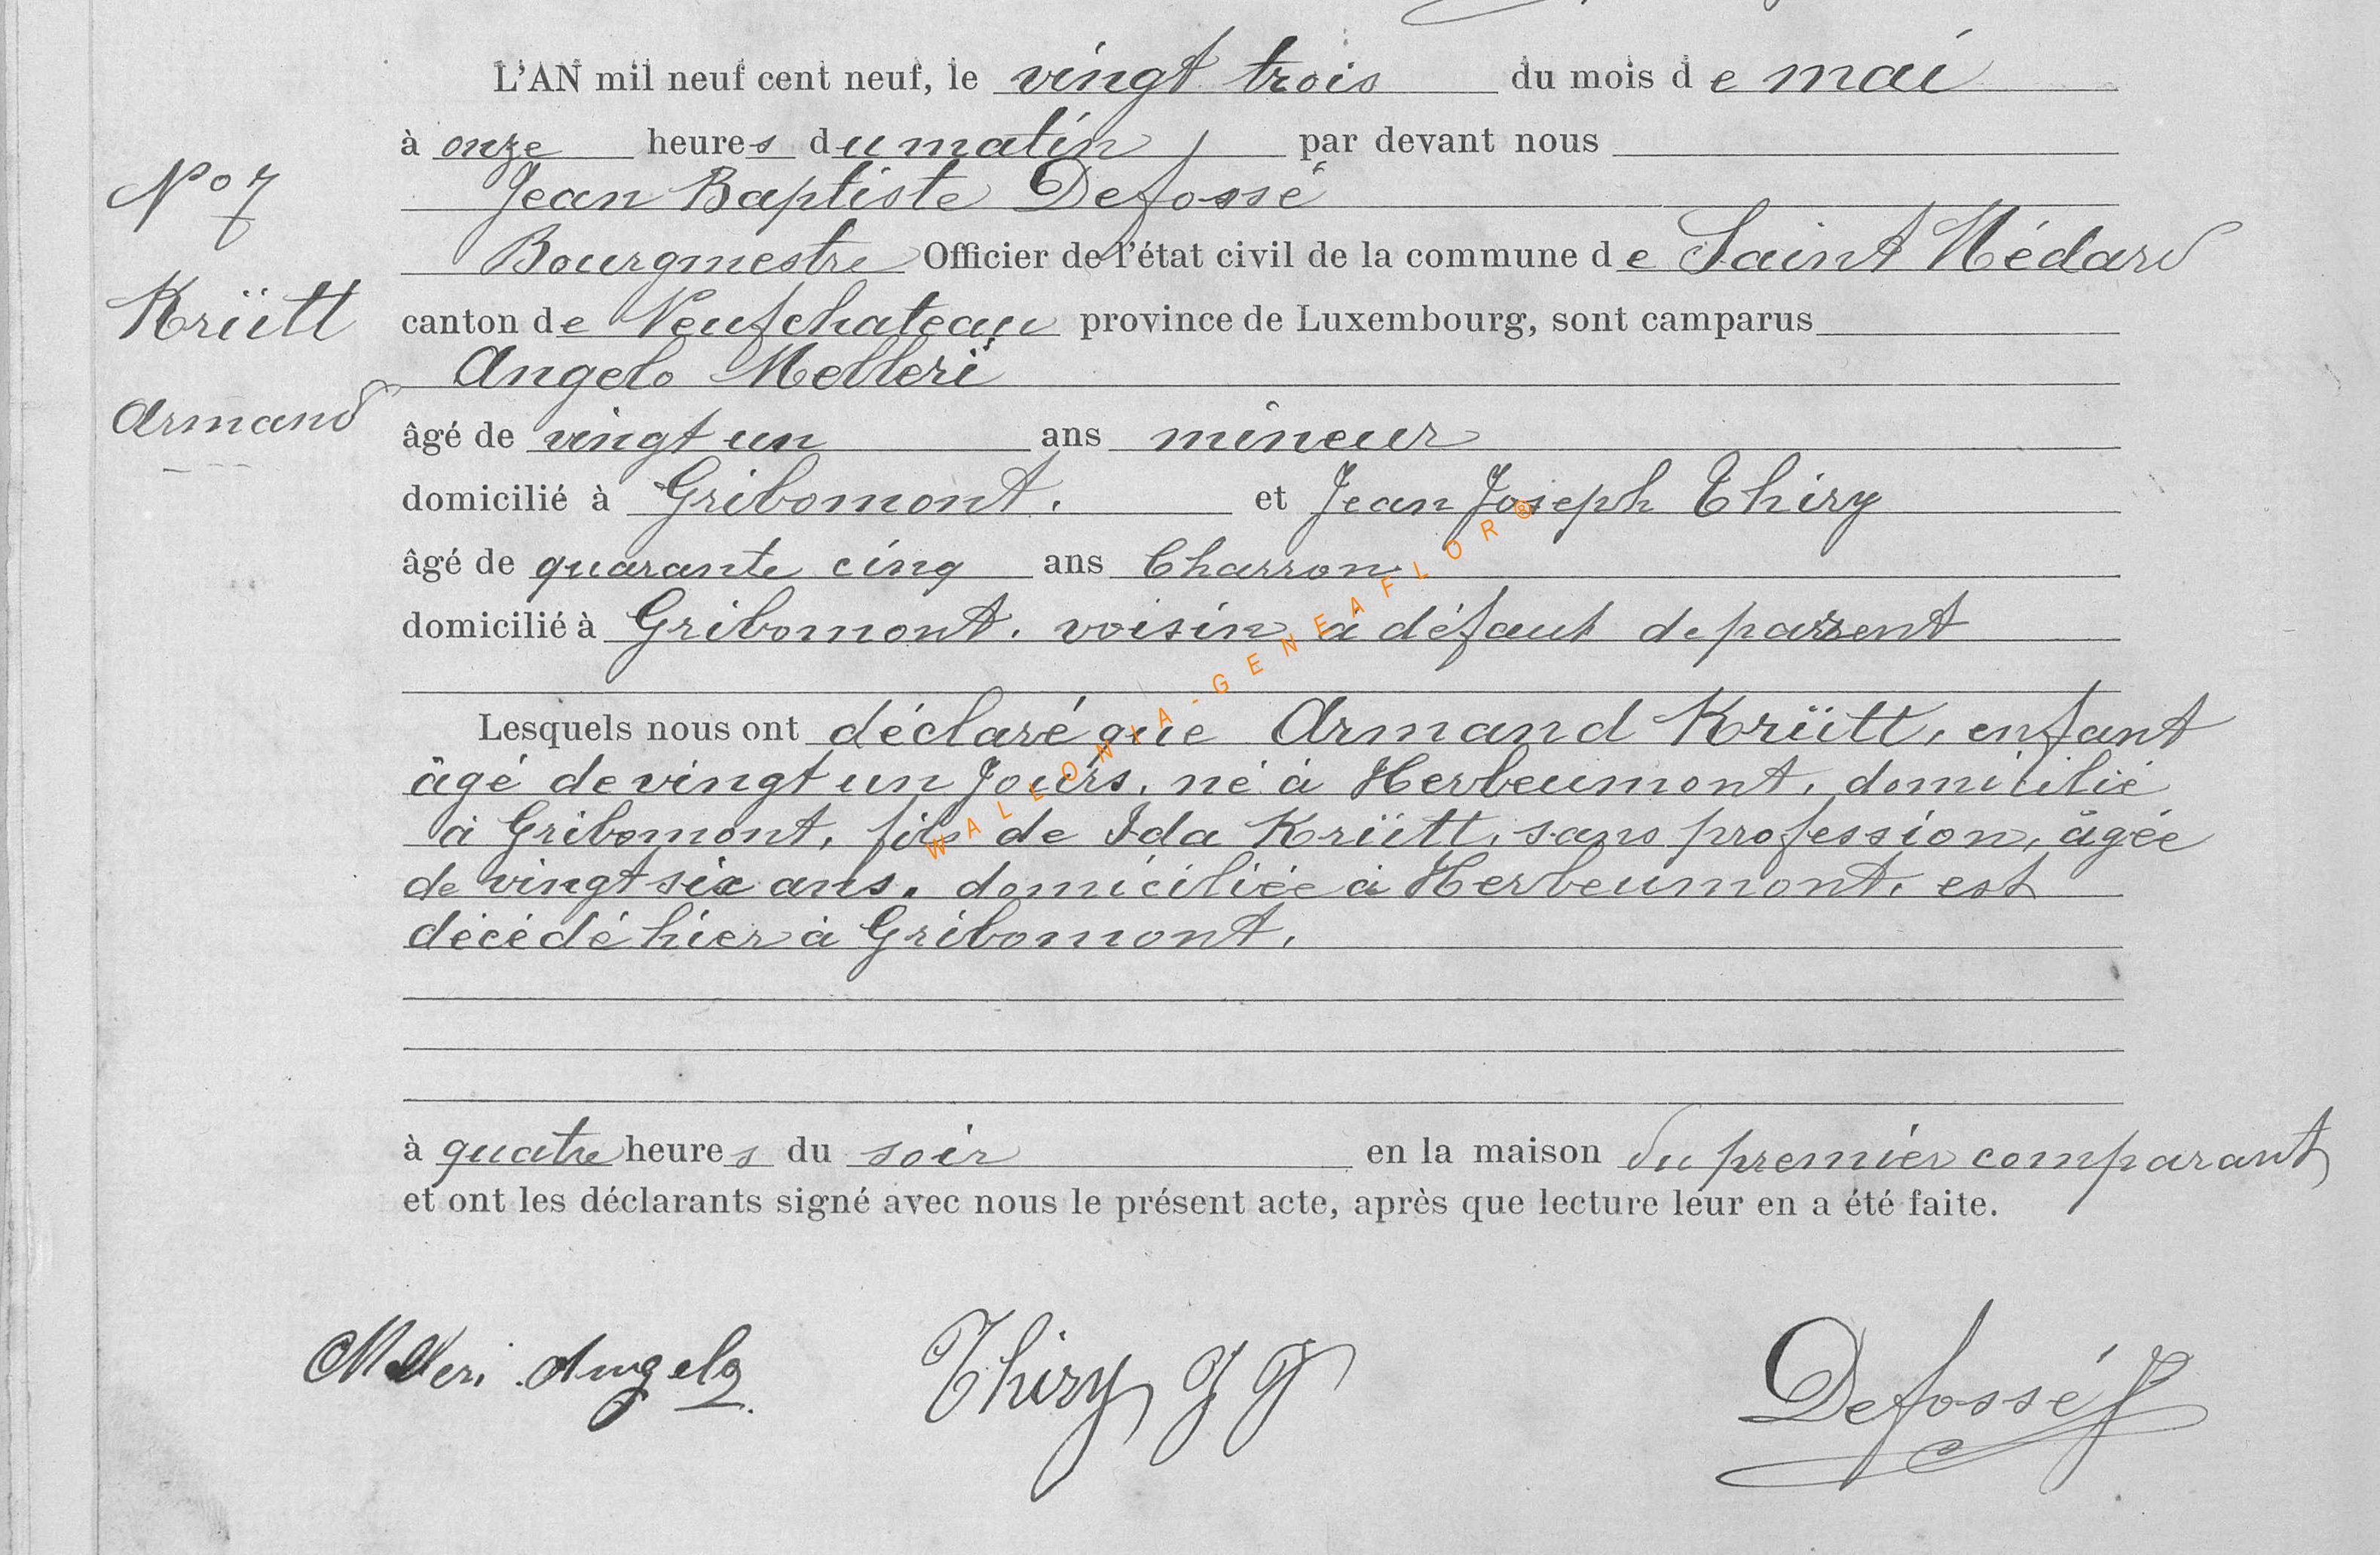 L'AN mil neuf cent neuf, le vingt trois du mois de mai
à onze heures du matin, par devant nous
Nº 7
Jean Baptiste Defossé
Bourgmestre Officier de l'état civil de la commune de Saint Médard
Krütt
canton de Neufchateau province de Luxembourg, sont camparus
Angelo Melleri
Armand
âgé de vingt un ans mineur
domicilié à Gribomont. et Jean Joseph Thiry
âgé de quarante cinq ans Charron
domicilié à Gribomont. voisin à défaut de parent
Lesquels nous ont déclaré que Armand Krütt, enfant
âgé de vingt un Jours, né à Herbeumont, domicilié
à Gribomont, fils de Ida Krütt, sans profession, âgée
de vingt six ans, domiciliée à Herbeumont, est
décédé hier à Gribomont,
à quatre heures du soir en la maison du premier comparant
et ont les déclarants signé avec nous le présent acte, après que lecture leur en a été faite.
Melleri Angelo Thiry J J Defossé
WALLONIA-GENEAFLOR®